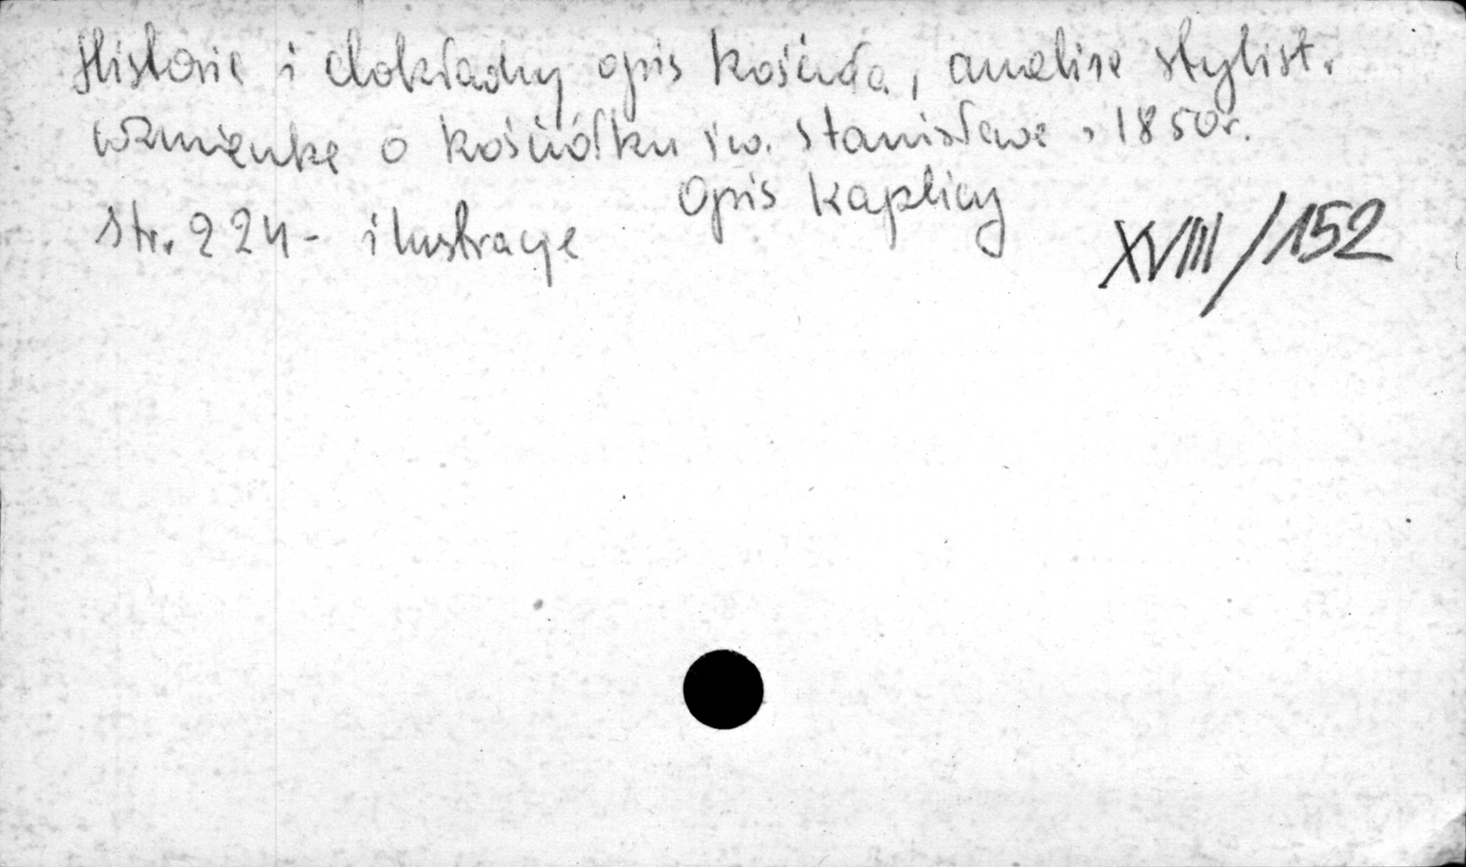 Historia i dokładny opis kościoła, analiza stylist.
Wzmianka o kościółku św. Stanisława z 1850r.
Opis kaplicy
Str. 224 - ilustracje
XVIII/152